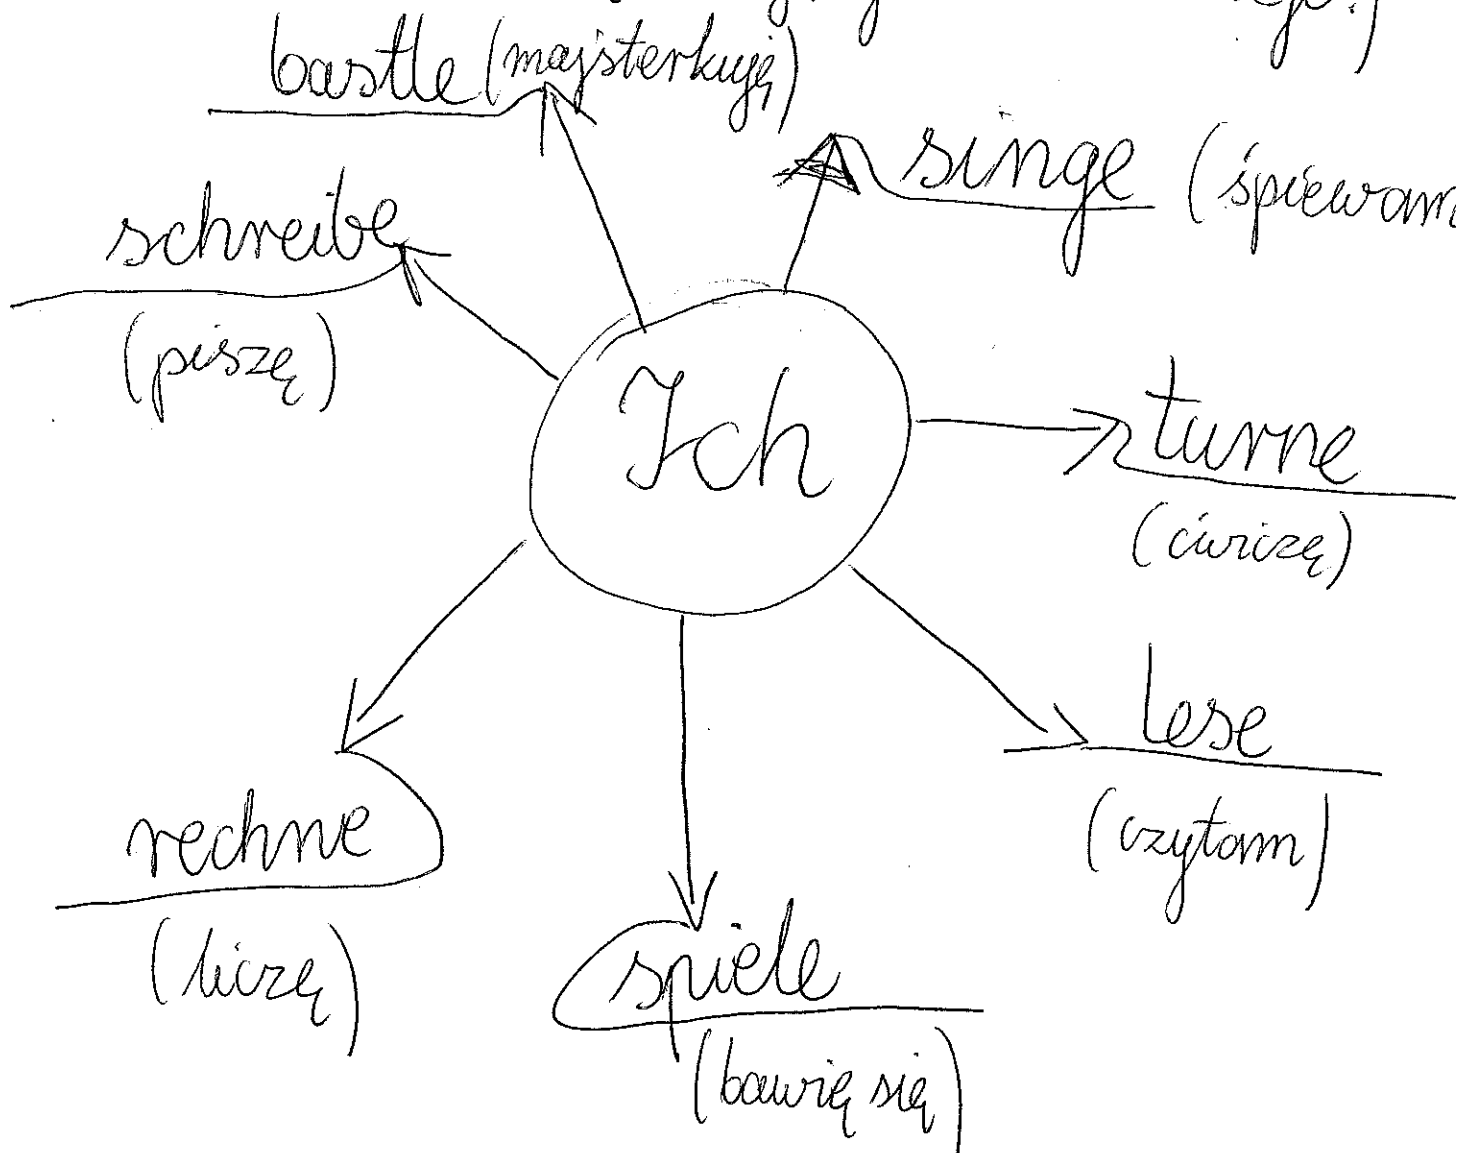 bastle (majsterkuję)
singe (śpiewam
schreibe
(piszę)
Ich
turne
(ćwiczę)
lese
(czytam)
rechne
(liczę)
spiele
(bawię się)